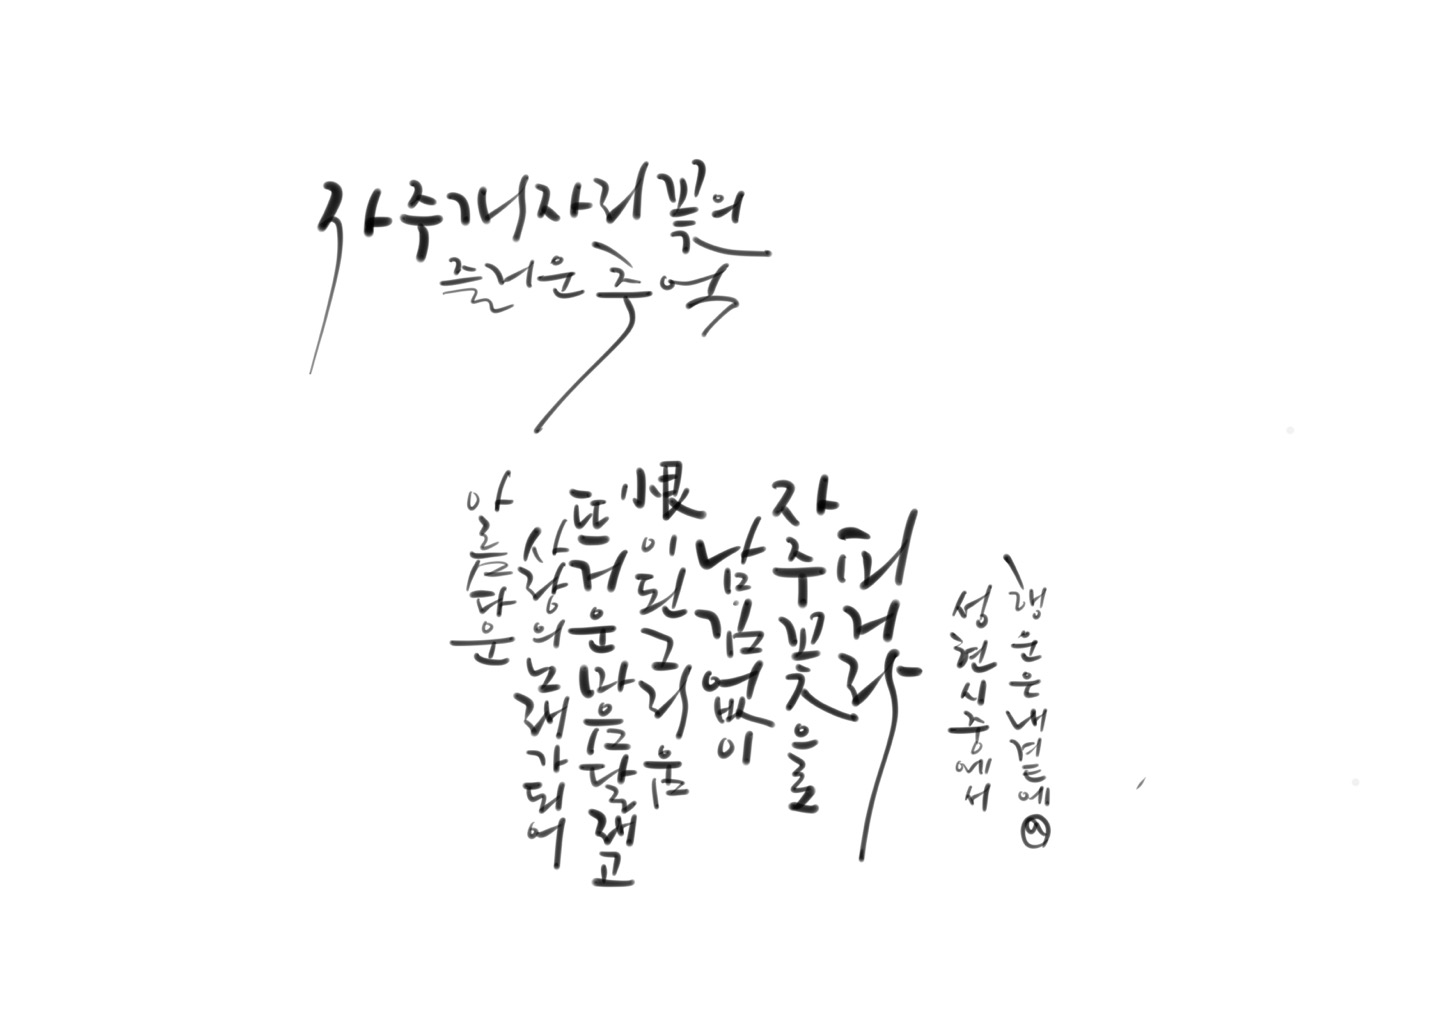 자주개자리꽃의
즐거운 추억
아름다운
사랑의 노래가 되어
뜨거운 마음 달래고
恨이 된 그리움
남김없이
자주꽃을
피거라
성현 시 중에서
행운은 내 곁에